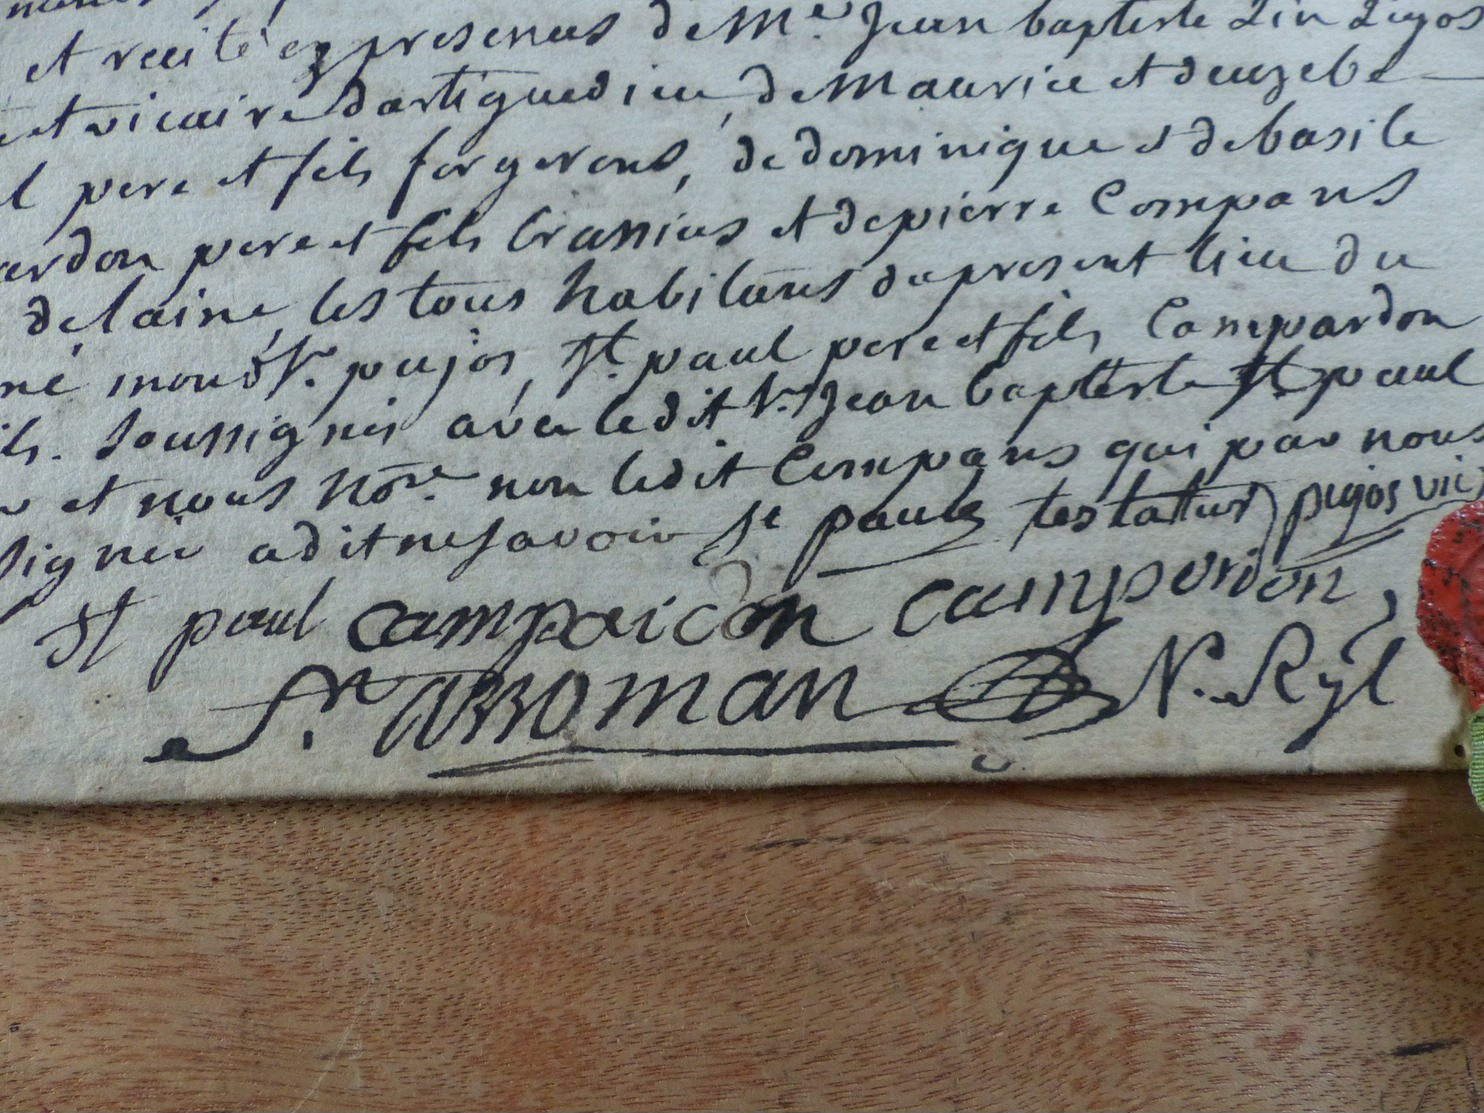 et recité ez presences de Me. Jean baptiste
et vicaire dartiguedieu, de Maurice et deuzebe
pere et fils forgerons, de dominique et de basile
ardon pere et fils brassiers et de pierre Compans
de laine, les tous habitans du present lieu du
né mond Sr. pujos, St. paul pere et fils Campardon
ils. soussignés avec ledit Sr. Jean baptiste St paul
et nous Nore. non ledit Compans qui par nous
signer a dit ne savoir St paul testatur pujos vic
St paul campardon campardon
Sr. Arroman N. Ryl